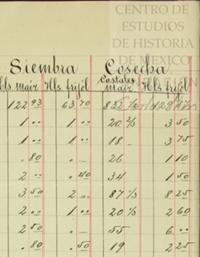 CENTRO DE
ESTUDIOS
DE HISTORIA
DE MEXICO
Siembra Cosecha
Hls. maiz Hls. frijol Costales maiz Hls. frijol
122 93 63 70
1 " 1 " 20 2/3 3 50
1 " 1 " 18 " 3 75
" 80 " " 26 1 10
2 " " 40 34 1 50
3 50 2 " 87 1/3 8 25
1 " 1 " 20 2/3 2 60
2 " 2 " 55 6 "
" 80 " 50 19 2 25